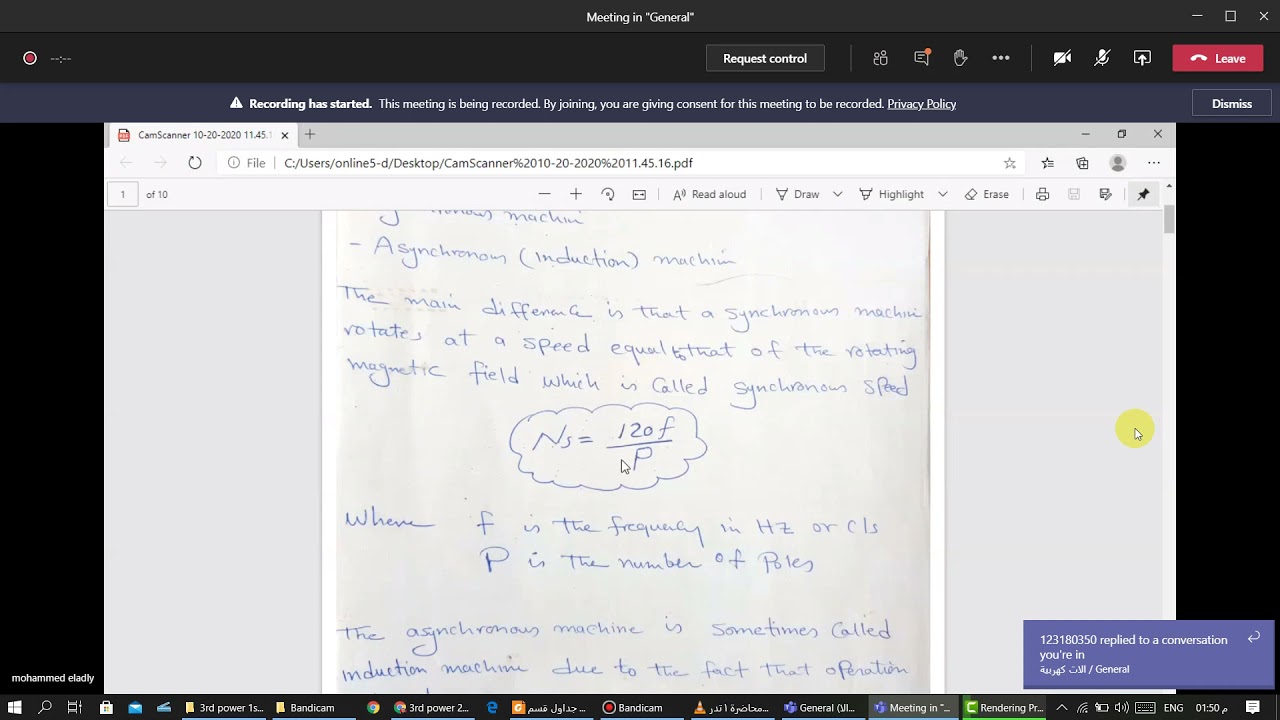 Meeting in "General"
--:--
Request control
Leave
Recording has started. This meeting is being recorded. By joining, you are giving consent for this meeting to be recorded. Privacy Policy
Dismiss
CamScanner 10-20-2020 11.45.1
File
C:/Users/online5-d/Desktop/CamScanner%2010-20-2020%2011.45.16.pdf
1 of 10
Read aloud
Draw
Highlight
Erase
machin
- Asynchronous (induction) machin
The main difference is that a synchronous machin
rotates at a speed equal to that of the rotating
magnetic field which is called synchronous speed
Ns = 120f
P
Where f is the frequency in HZ or C/s
P is the number of Poles
The asynchronous machine is sometimes called
induction machine due to the fact that operation
123180350 replied to a conversation
you're in
الات كهربية / General
mohammed eladly
3rd power 1s...
Bandicam
3rd power 2...
جداول قسم...
Bandicam
محاضرة ١ ندر...
General (\\...
Meeting in "...
Rendering Pr...
ENG
01:50 م